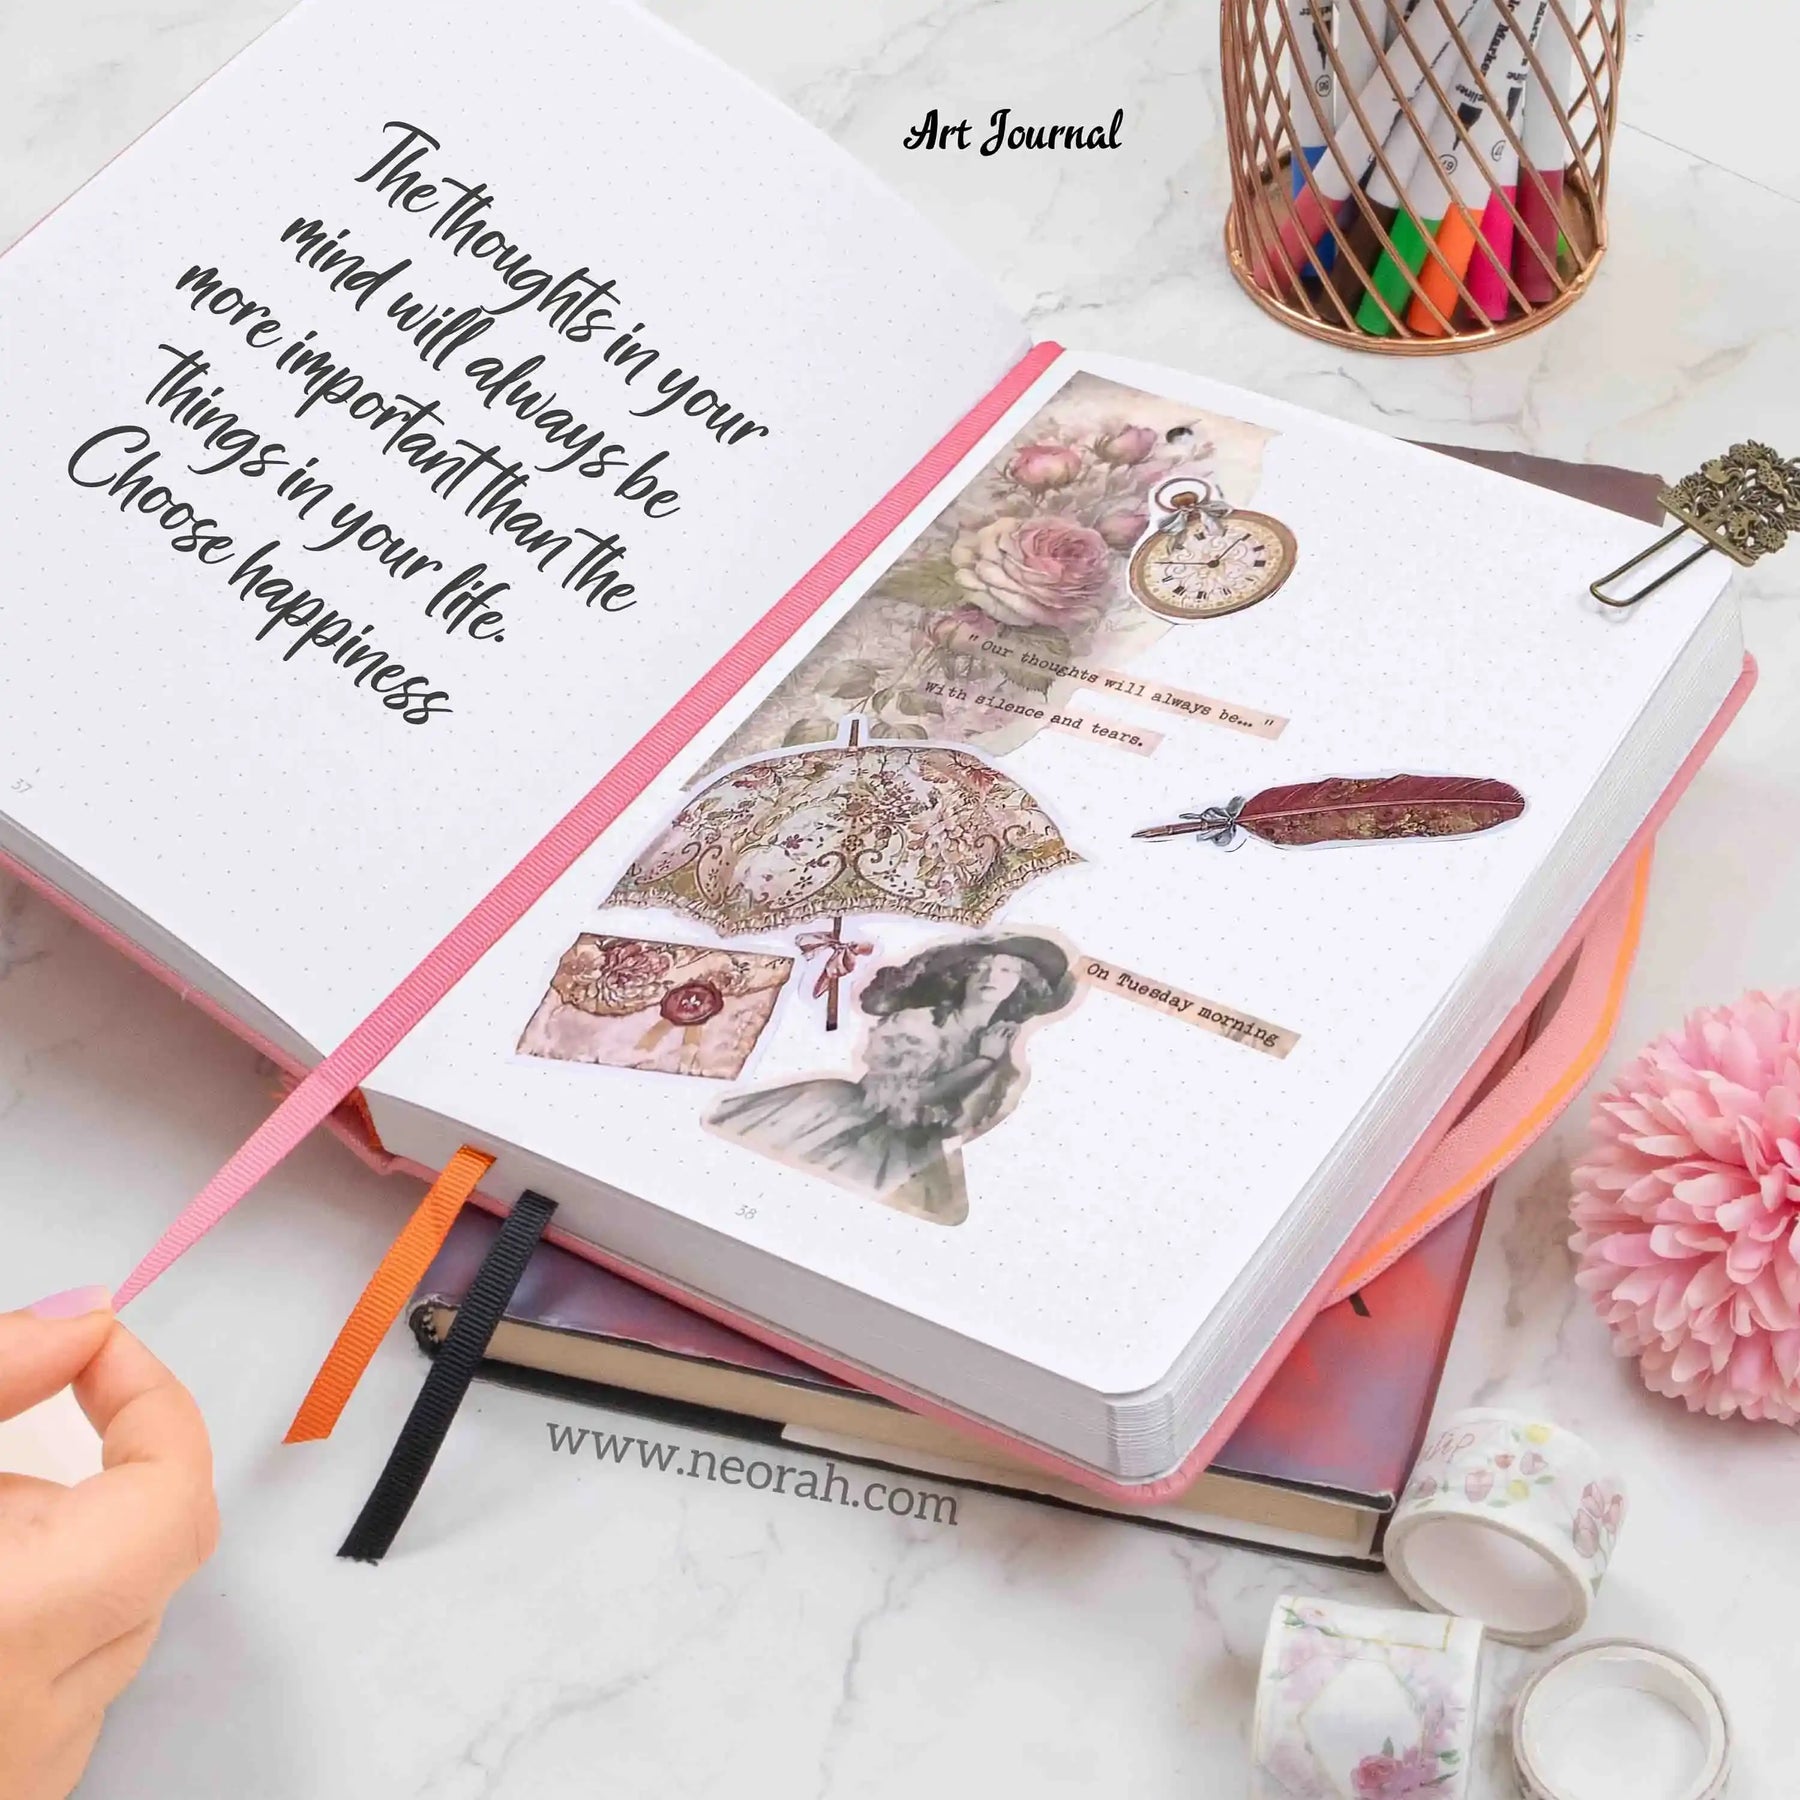 Art Journal
The thoughts in your
mind will always be
more important than the
things in your life.
Choose happiness
37
"Our thoughts will always be... "
With silence and tears.
On Tuesday morning
38
www.neorah.com